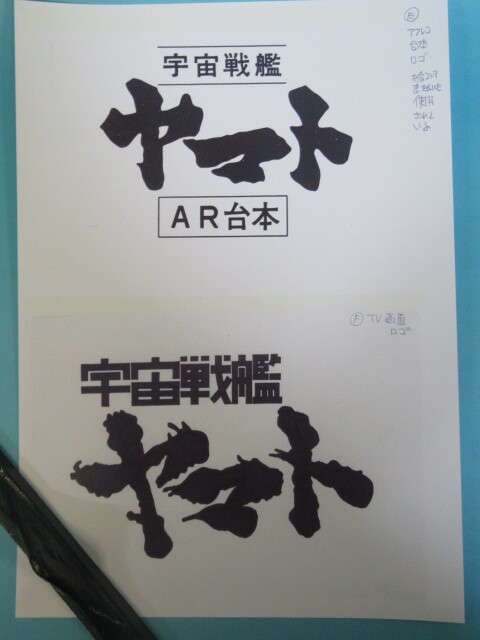 宇宙戦艦
ヤマト
AR台本
アフレコ
台本
ロゴ
使用
されて
いる
TV画面
ロゴ
宇宙戦艦
ヤマト